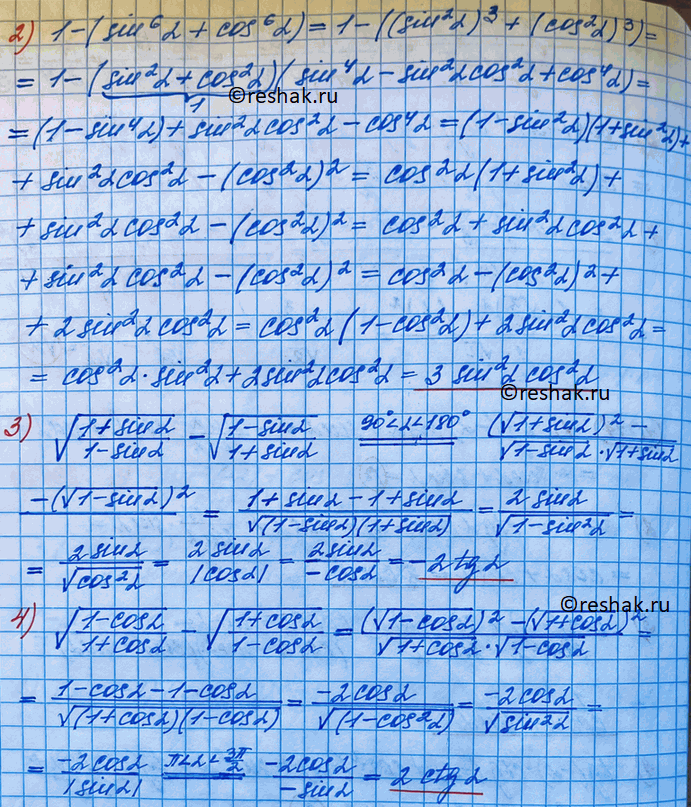 2) 1-(sin⁶α + cos⁶α) = 1-((sin²α)³ + (cos²α)³) =
= 1-(sin²α + cos²α)(sin⁴α - sin²α cos²α + cos⁴α) =
1
©reshak.ru
= (1-sin⁴α) + sin²α cos²α - cos⁴α = (1-sin²α)(1+sin²α) +
+ sin²α cos²α - (cos²α)² = cos²α (1+sin²α) +
+ sin²α cos²α - (cos²α)² = cos²α + sin²α cos²α +
+ sin²α cos²α - (cos²α)² = cos²α - (cos²α)² +
+ 2 sin²α cos²α = cos²α (1-cos²α) + 2 sin²α cos²α =
= cos²α · sin²α + 2 sin²α cos²α = 3 sin²α cos²α
©reshak.ru
3) √((1+sinα)/(1-sinα)) - √((1-sinα)/(1+sinα)) 90°<α<180° = (√(1+sinα))² - / √(1-sinα) · √(1+sinα)
-(√(1-sinα))² = (1+sinα-1+sinα)/√((1-sinα)(1+sinα)) = 2sinα/√(1-sin²α) =
= 2sinα/√(cos²α) = 2sinα/|cosα| = 2sinα/-cosα = -2tgα
©reshak.ru
4) √((1-cosα)/(1+cosα)) - √((1+cosα)/(1-cosα)) = ((√(1-cosα))² - (√(1+cosα))²)/(√(1+cosα) · √(1-cosα)) =
= (1-cosα-1-cosα)/√((1+cosα)(1-cosα)) = -2cosα/√(1-cos²α) = -2cosα/√(sin²α) =
= -2cosα/|sinα| π<α<3π/2 = -2cosα/-sinα = 2ctgα